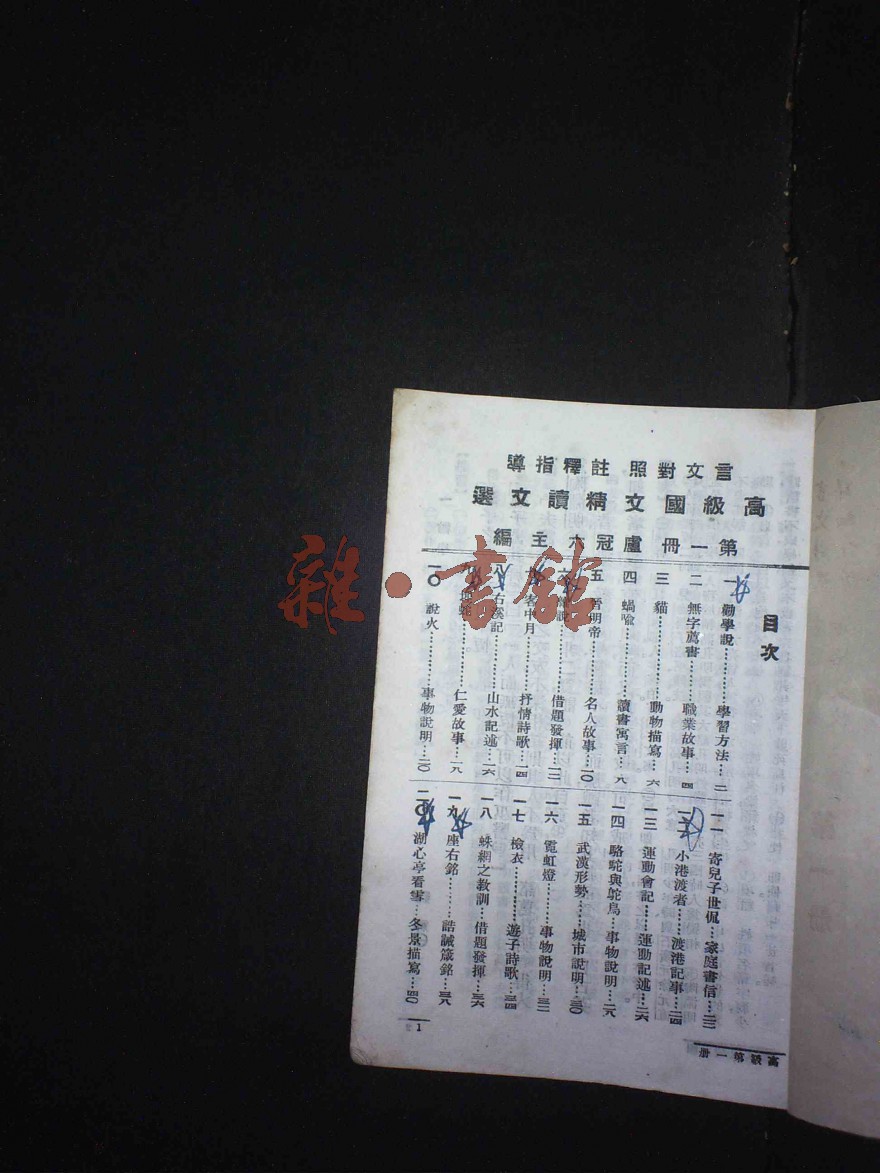 言文對照註釋指導
高級國文精讀文選
第一冊盧冠六主編
目次
一 勸學說………學習方法…二
二 無字薦書………職業故事…四
三 貓………動物描寫…六
四 蝸喻………讀書寓言…八
五 晉明帝………名人故事…一〇
說………借題發揮…一二
舟中月………抒情詩歌…一四
八 右溪記………山水記述…一六
仁愛故事…一九
一〇 說火………事物說明…二〇
一一 寄兒子世侃…家庭書信…二二
小港渡者………渡港記事…二四
一三 運動會記…運動記述…二六
一四 駱駝與鴕鳥…事物說明…二八
一五 武漢形勢…城市說明…三〇
一六 霓虹燈………事物說明…三二
一七 檢衣………遊子詩歌…三四
一八 蛛網之教訓…借題發揮…三六
一九 座右銘………誥誡箴銘…三八
二〇 湖心亭看雪…冬景描寫…四〇
高級第一册
1
雜·書館